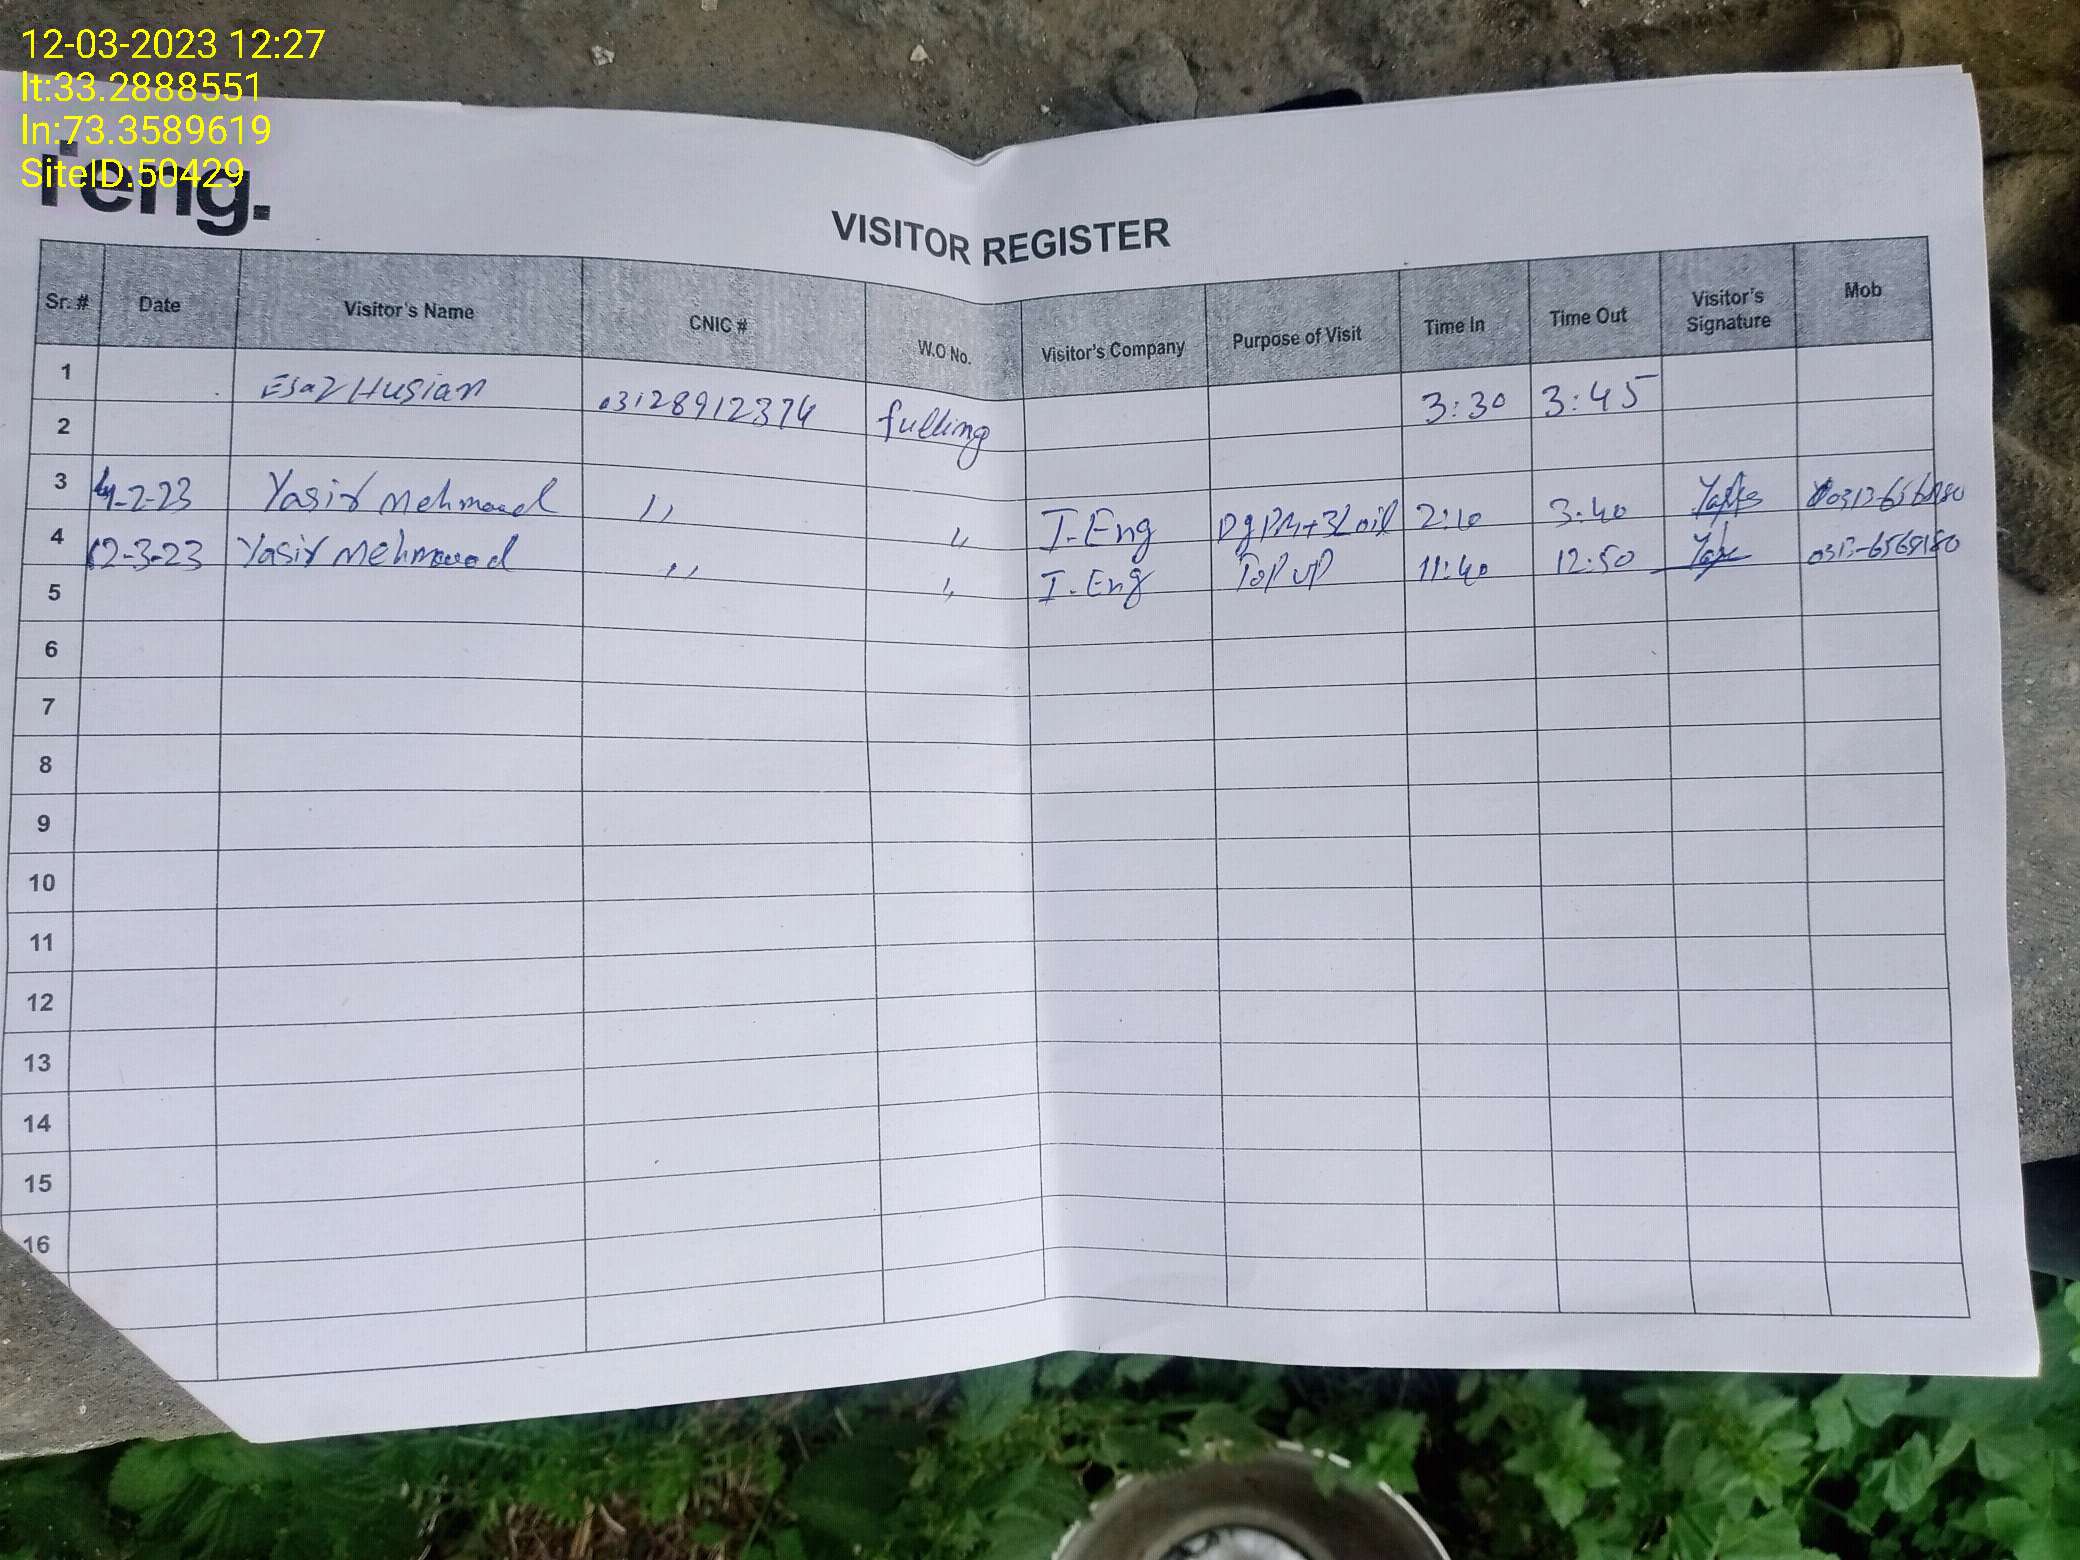 12-03-2023 12:27
lt:33.2888551
ln:73.3589619
SiteID:50429
eng.
VISITOR REGISTER
Sr. # Date Visitor's Name CNIC # W.O No. Visitor's Company Purpose of Visit Time In Time Out Visitor's Signature Mob
1 Husian 03128912374 fulling 3:30 3:45
2
3 4-2-23 Yasir Mehmood ,, ,, I-Eng DgPM+3Loil 2:10 3:40
4 12-3-23 Yasir Mehmood ,, ,, I-Eng ToP uP 11:40 12:50
5
6
7
8
9
10
11
12
13
14
15
16